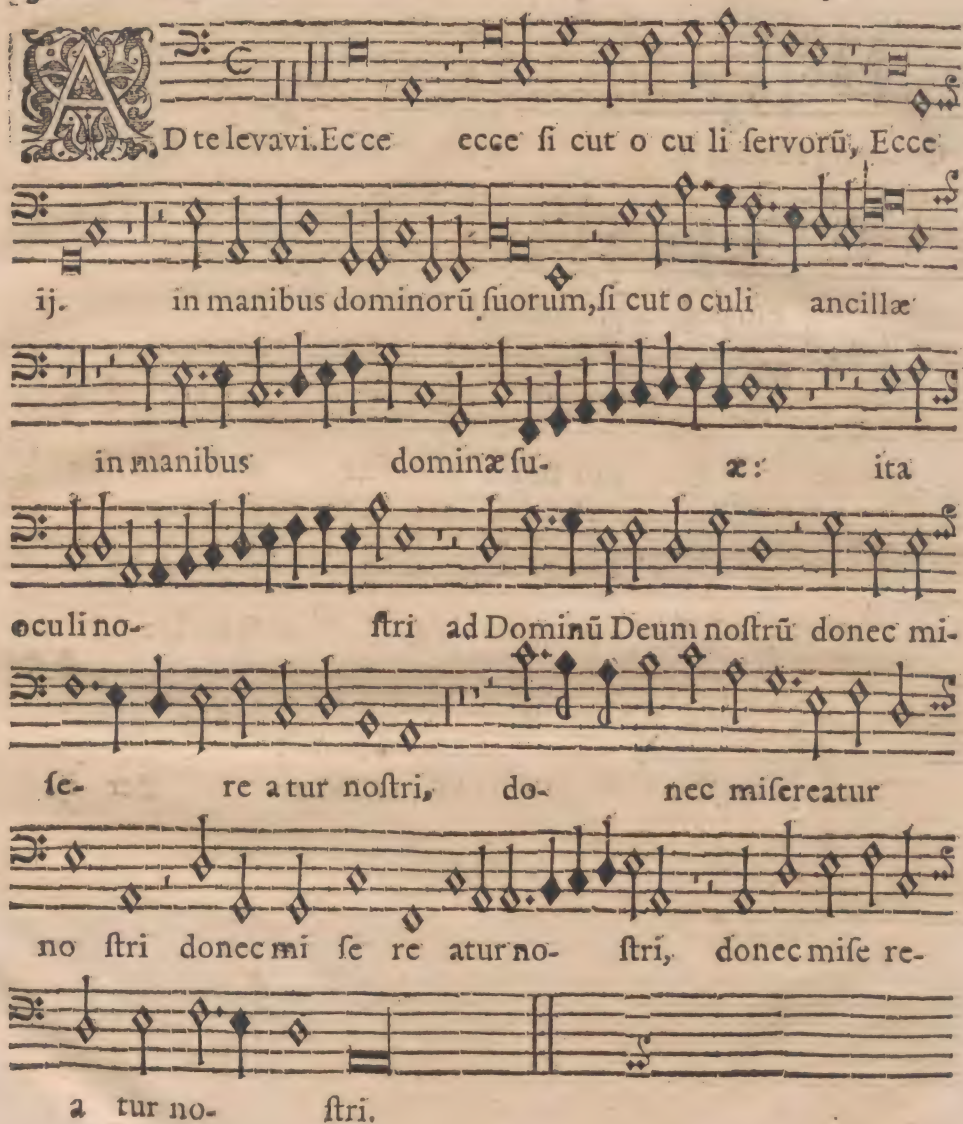 AD te levavi. Ec ce ecce ſi cut o cu li ſervorū, Ecce
ij. in manibus dominorū ſuorum, ſi cut o culi ancillæ
in manibus dominæ ſu- æ: ita
oculi no- ſtri ad Dominū Deum noſtrū donec mi-
ſe- re a tur noſtri, do- nec miſereatur
no ſtri donec mi ſe re atur no- ſtri, donec miſe re-
a tur no- ſtri.